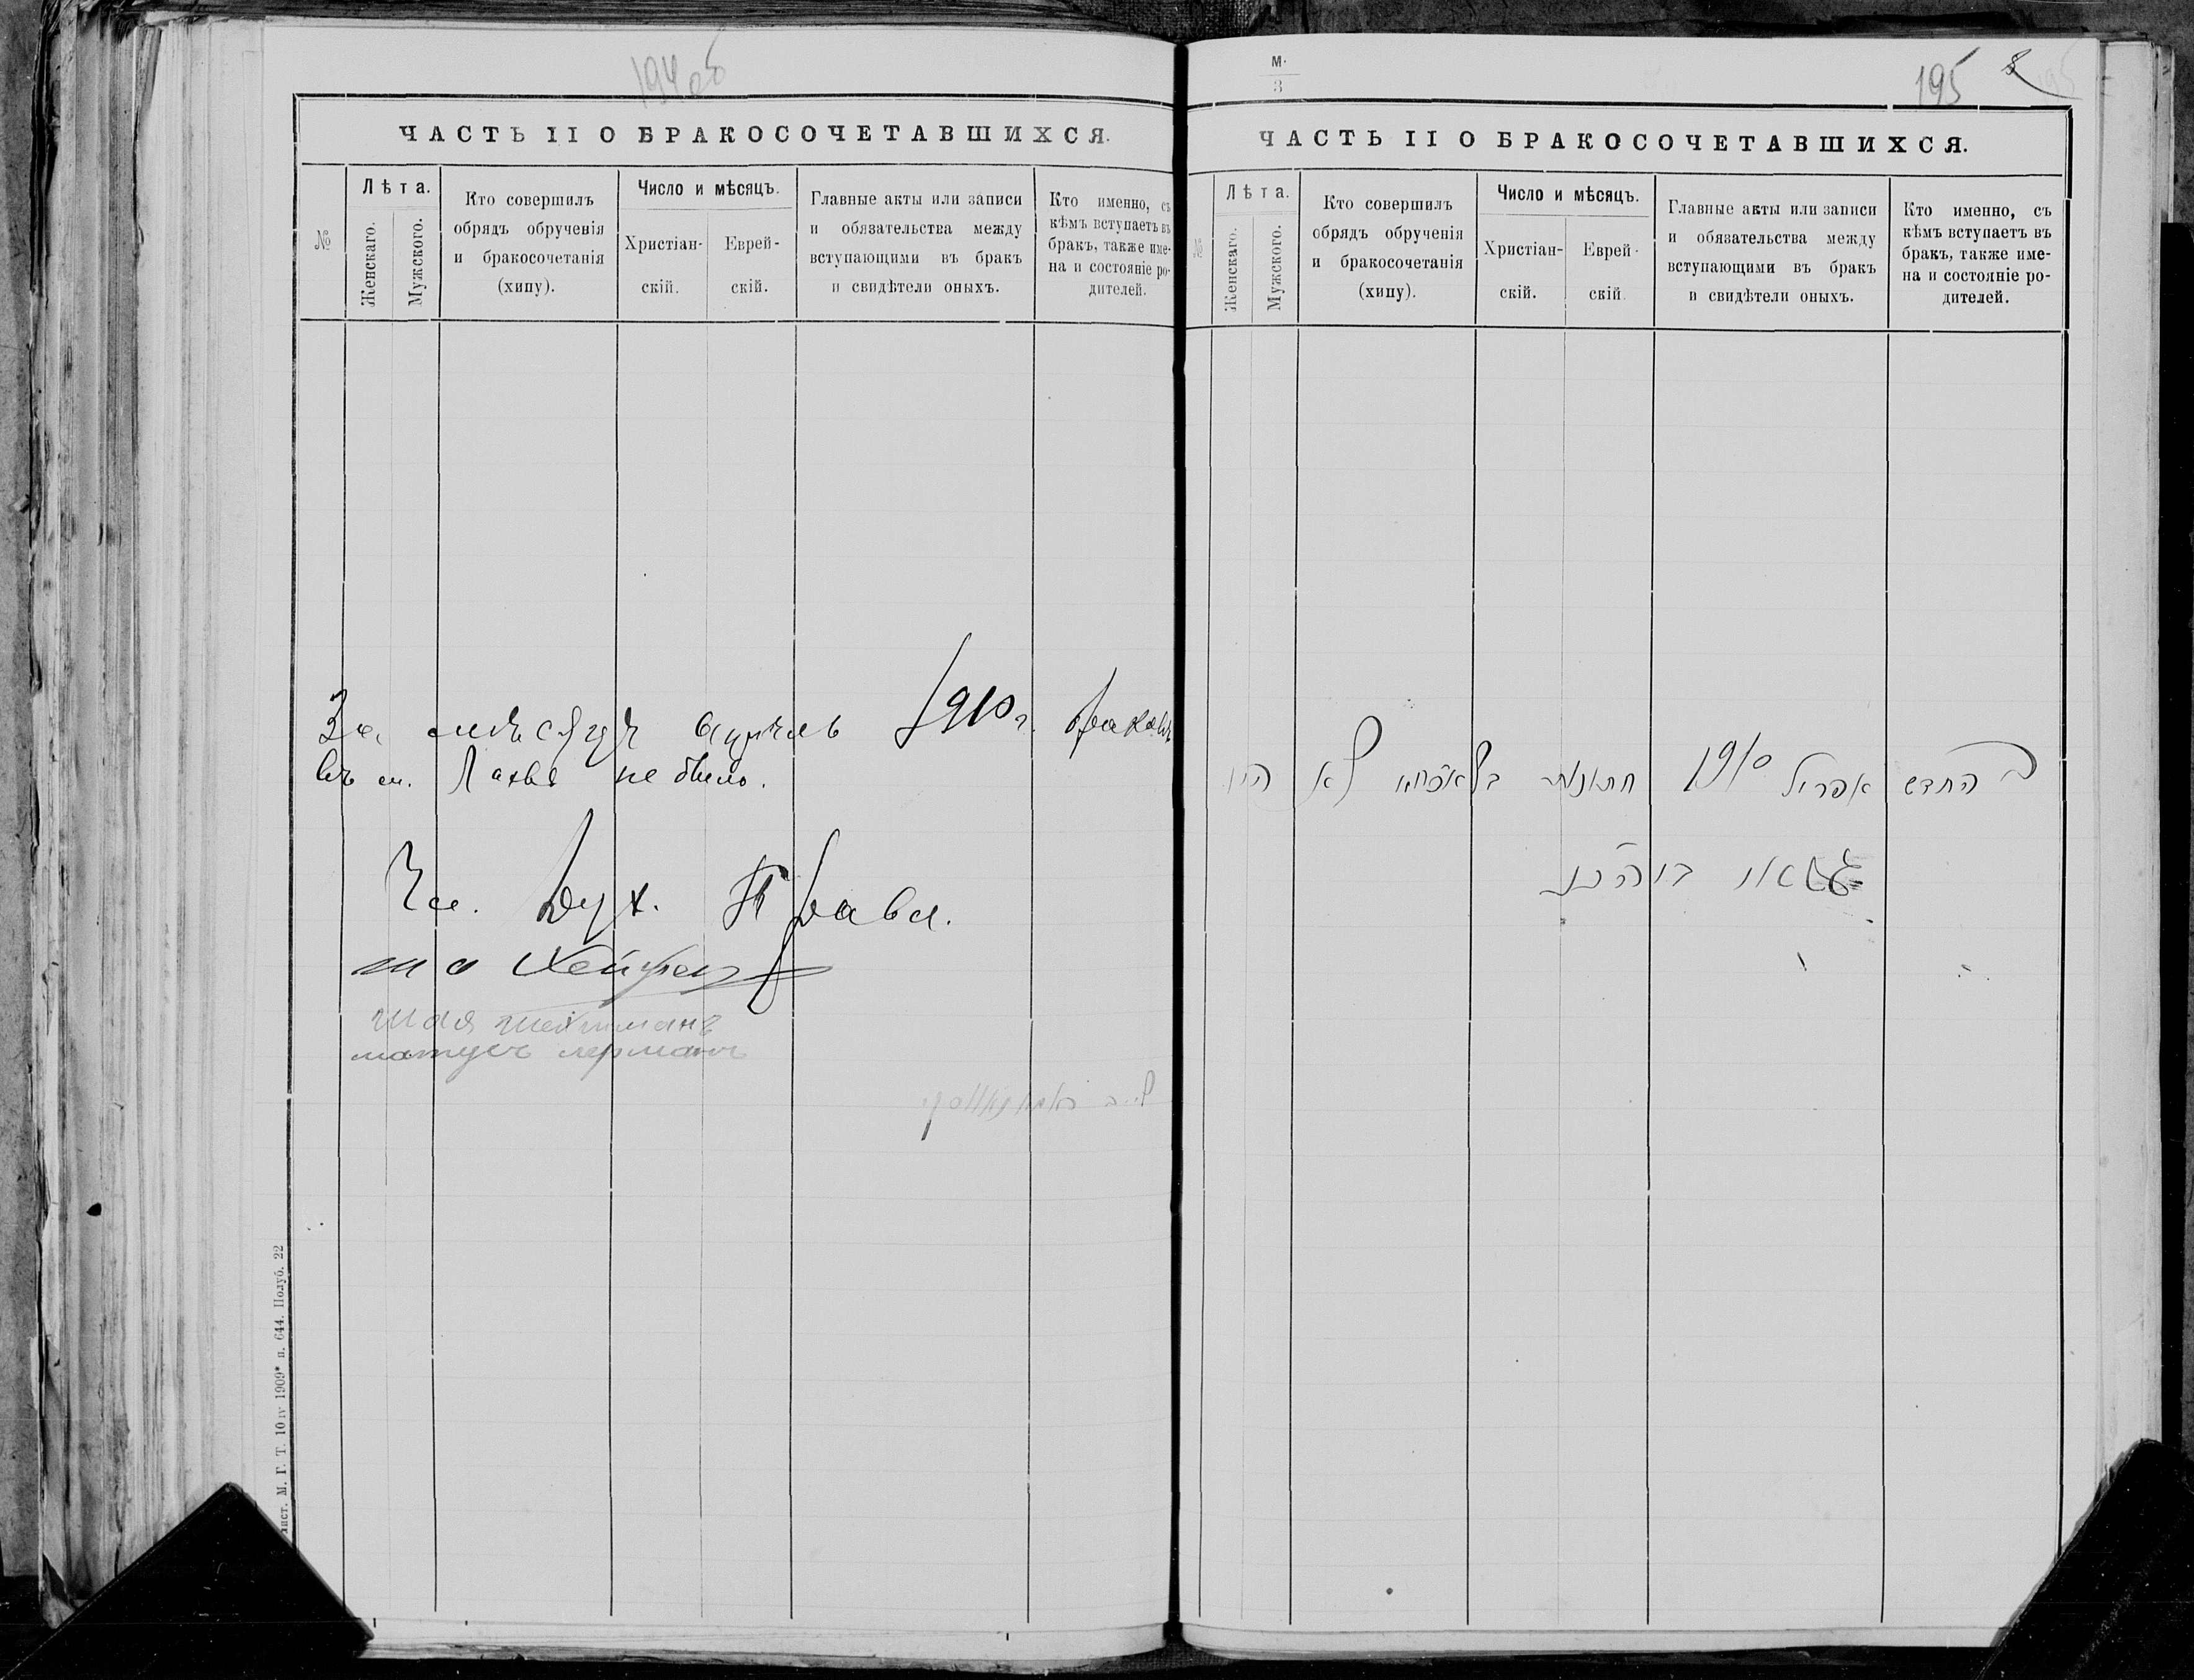 194 об
ЧАСТЬ II О БРАКОСОЧЕТАВШИХСЯ.
№
Лѣта.
Женскаго.
Мужского.
Кто совершилъ
обрядъ обрученія
и бракосочетанія
(хипу).
Число и мѣсяцъ.
Христіан-
скій.
Еврей-
скій.
Главные акты или записи
и обязательства между
вступающими въ бракъ
и свидѣтели оныхъ.
Кто именно, съ
кѣмъ вступаетъ въ
бракъ, также име-
на и состояніе ро-
дителей.
За мѣсяцъ апрѣль 1910 г. браковъ
въ м. Лахва не было.
Чл. Дух. Правл.
Хейфец
шая
матусъ лерманъ
М. Г. Т. 10 IV 1909 п. 644. Полуб. 22
М.
3
195
ЧАСТЬ II О БРАКОСОЧЕТАВШИХСЯ.
№
Лѣта.
Женскаго.
Мужского.
Кто совершилъ
обрядъ обрученія
и бракосочетанія
(хипу).
Число и мѣсяцъ.
Христіан-
скій.
Еврей-
скій.
Главные акты или записи
и обязательства между
вступающими въ бракъ
и свидѣтели оныхъ.
Кто именно, съ
кѣмъ вступаетъ въ
бракъ, также име-
на и состояніе ро-
дителей.
החדש אפריל 1910 חתונות לא היו